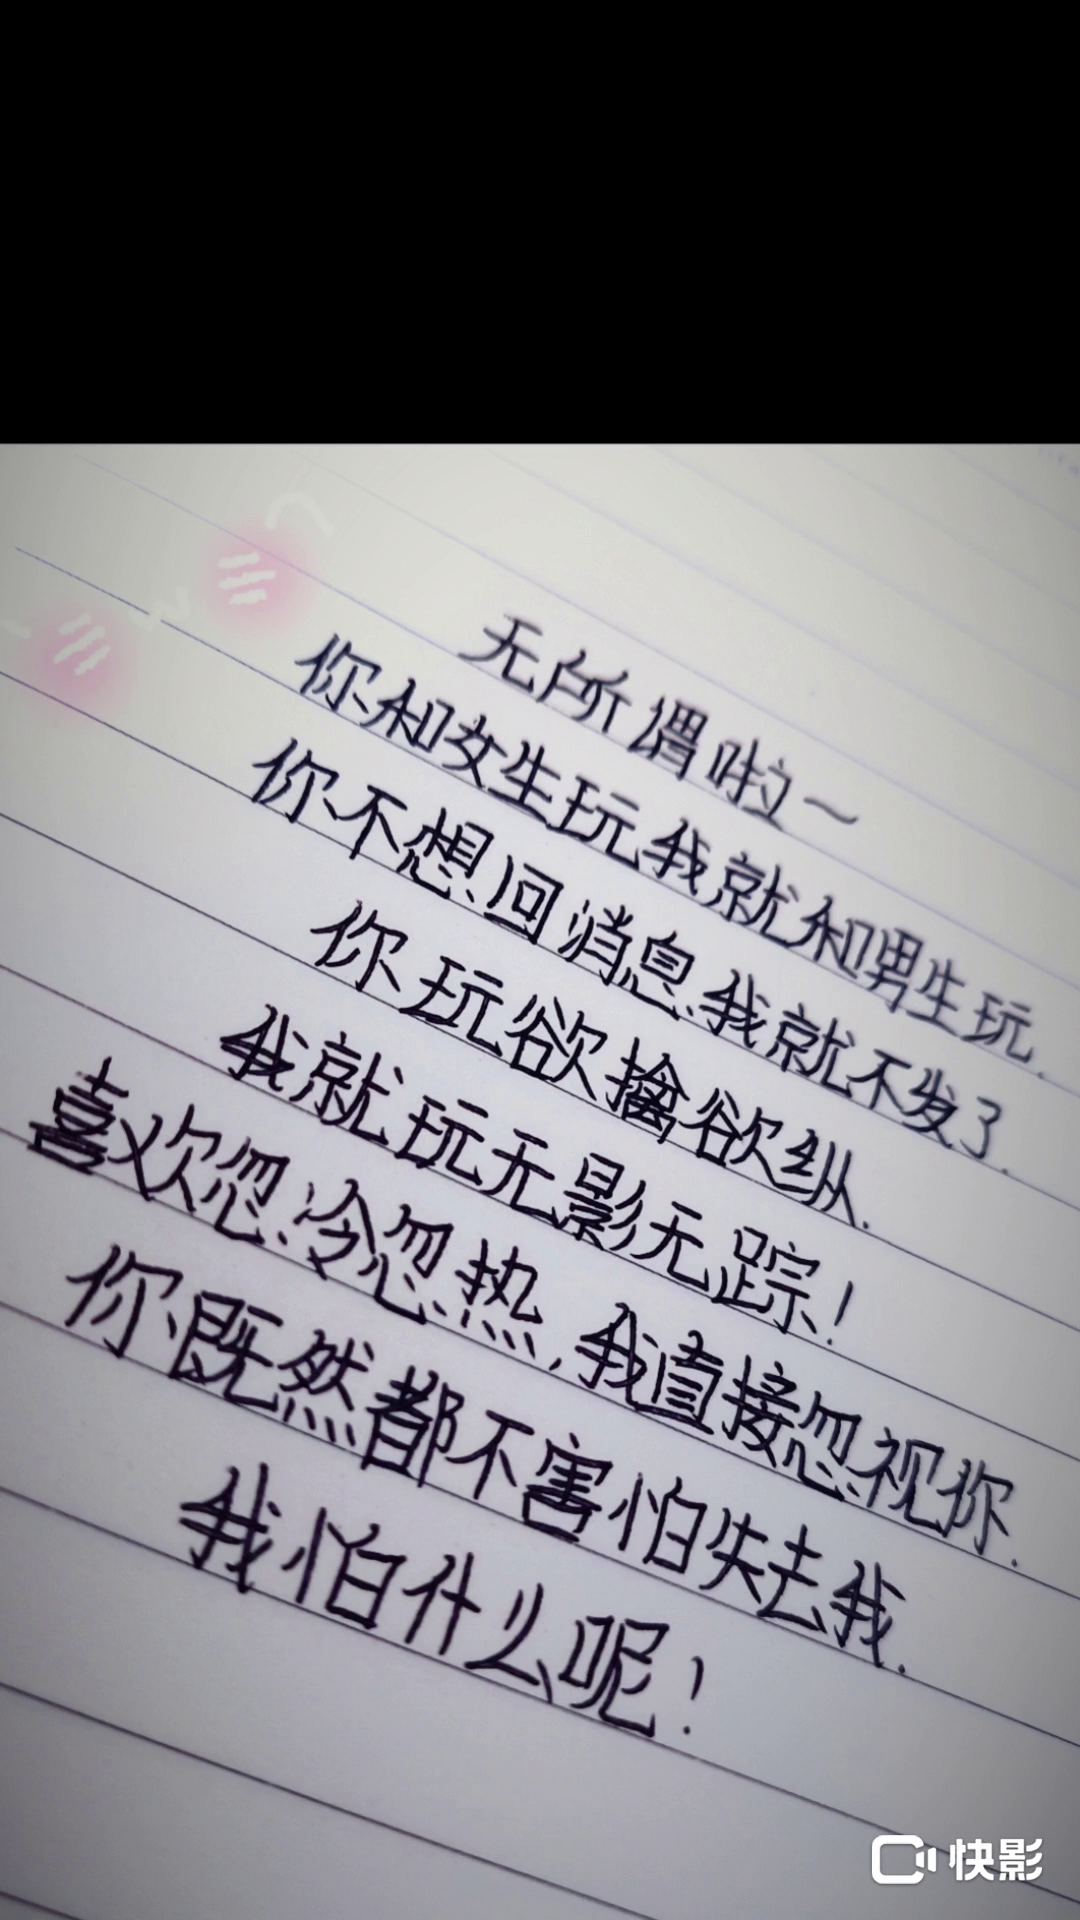 无所谓啦～
你和女生玩我就和男生玩.
你不想回消息我就不发了.
你玩欲擒欲纵.
我就玩无影无踪!
喜欢忽冷忽热,我直接忽视你.
你既然都不害怕失去我.
我怕什么呢!
快影